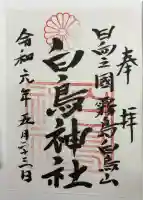 奉拝
日向之國霧島白鳥山
白鳥神社
令和元年五月二十二日